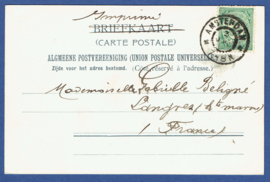 Imprimé
BRIEFKAART
(CARTE POSTALE)
AMSTERDAM
ALGEMEENE POSTVEREENIGING (UNION POSTALE UNIVERSELLE)
Zijde voor het adres bestemd. (Côté réservé à l'adresse.)
Mademoiselle Gabrielle Deligné
Langres (Hte marne)
(France)